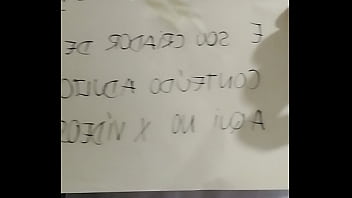 E SOU CRIADOR DE
CONTEÚDO ADULTO
AQUI NO X VIDEOS